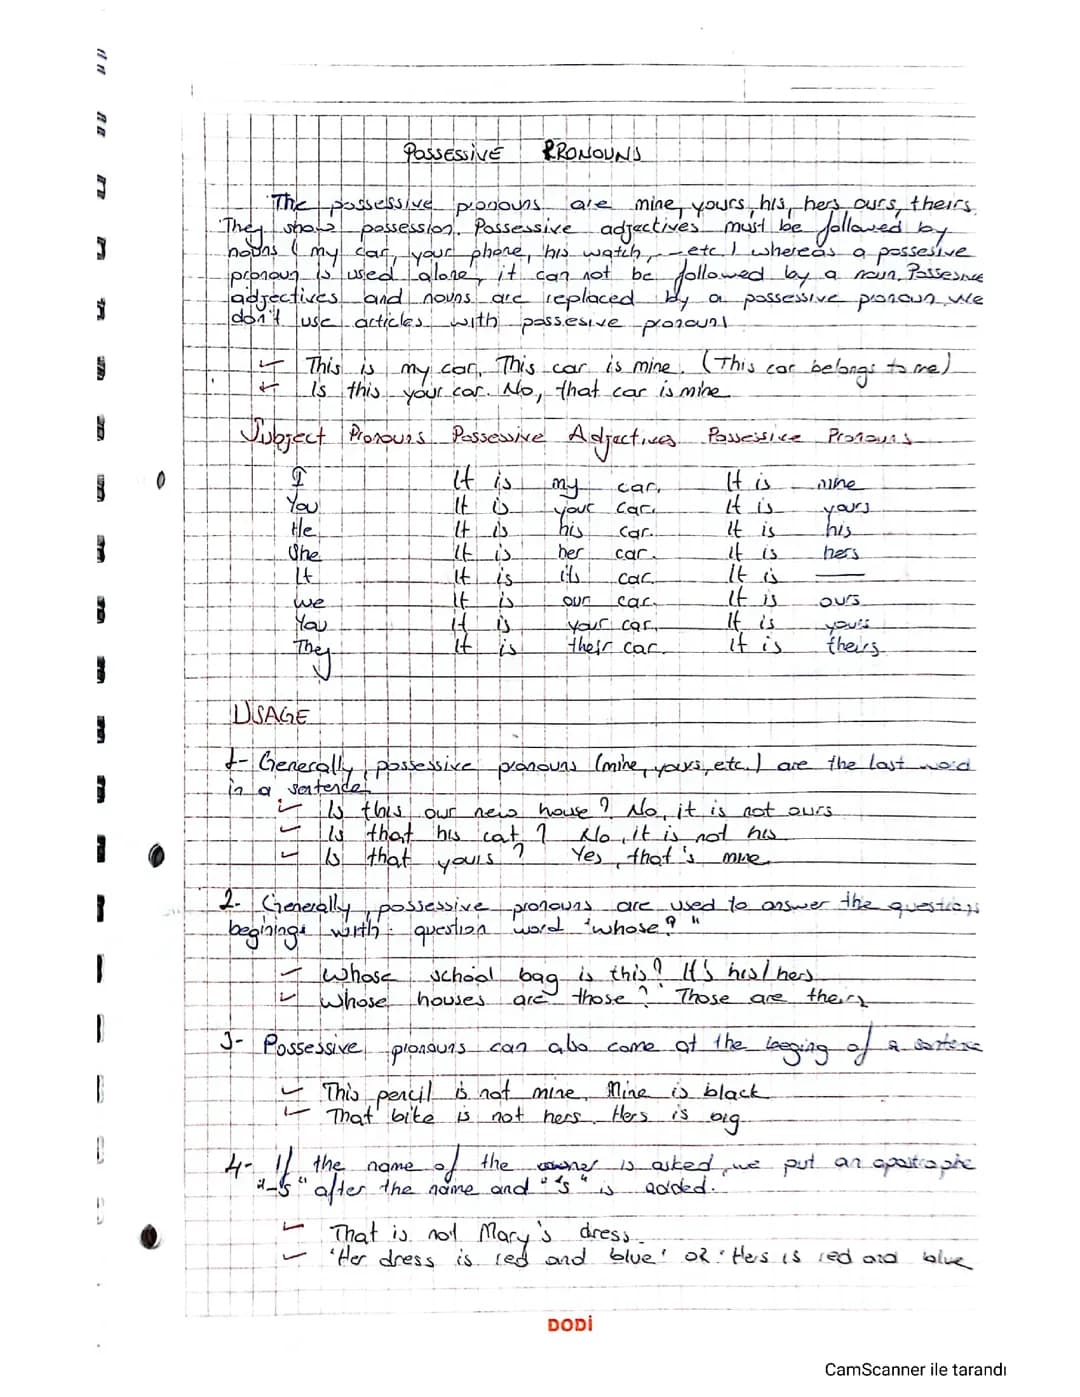 POSSESSIVE PRONOUNS
The possessive pronouns are mine, yours, his, hers ours, theirs
They show possession. Possessive adjectives must be followed by
nouns ( my car, your phone, his watch, - etc. ) whereas a possesive
pronoun is used alone, it can not be followed by a noun. Possesive
adjectives and nouns are replaced by a possessive pronoun. We
don't use articles with possesive pronoun!
This is my car. This car is mine. (This car belongs to me)
Is this your car. No, that car is mine
Subject Pronouns Possessive Adjectives Possessive Pronouns
I It is my car. It is mine
You It is your car. It is yours
He It is his car. It is his
She It is her car. It is hers
It It is its car. It is ——
We It is our car. It is ours
You It is your car. It is yours
They It is their car. It is theirs
USAGE
1- Generally, possessive pronouns (mine, yours, etc.) are the last word
in a sentence.
Is this our new house? No, it is not ours
Is that his cat? No, it is not his
Is that yours? Yes, that's mine
2- Generally, possessive pronouns are used to answer the questions
begining with question word "whose?"
Whose school bag is this? It's his / hers
Whose houses are those? Those are theirs
3- Possessive pronouns can also come at the beging of a sentence
This pencil is not mine. Mine is black
That bike is not hers. Hers is big
4- If the name of the owner is asked, we put an apostrophe
"-'s" after the name and "'s" is added.
That is not Mary's dress.
'Her dress is red and blue' OR 'Hers is red and blue
DODİ
CamScanner ile tarandı